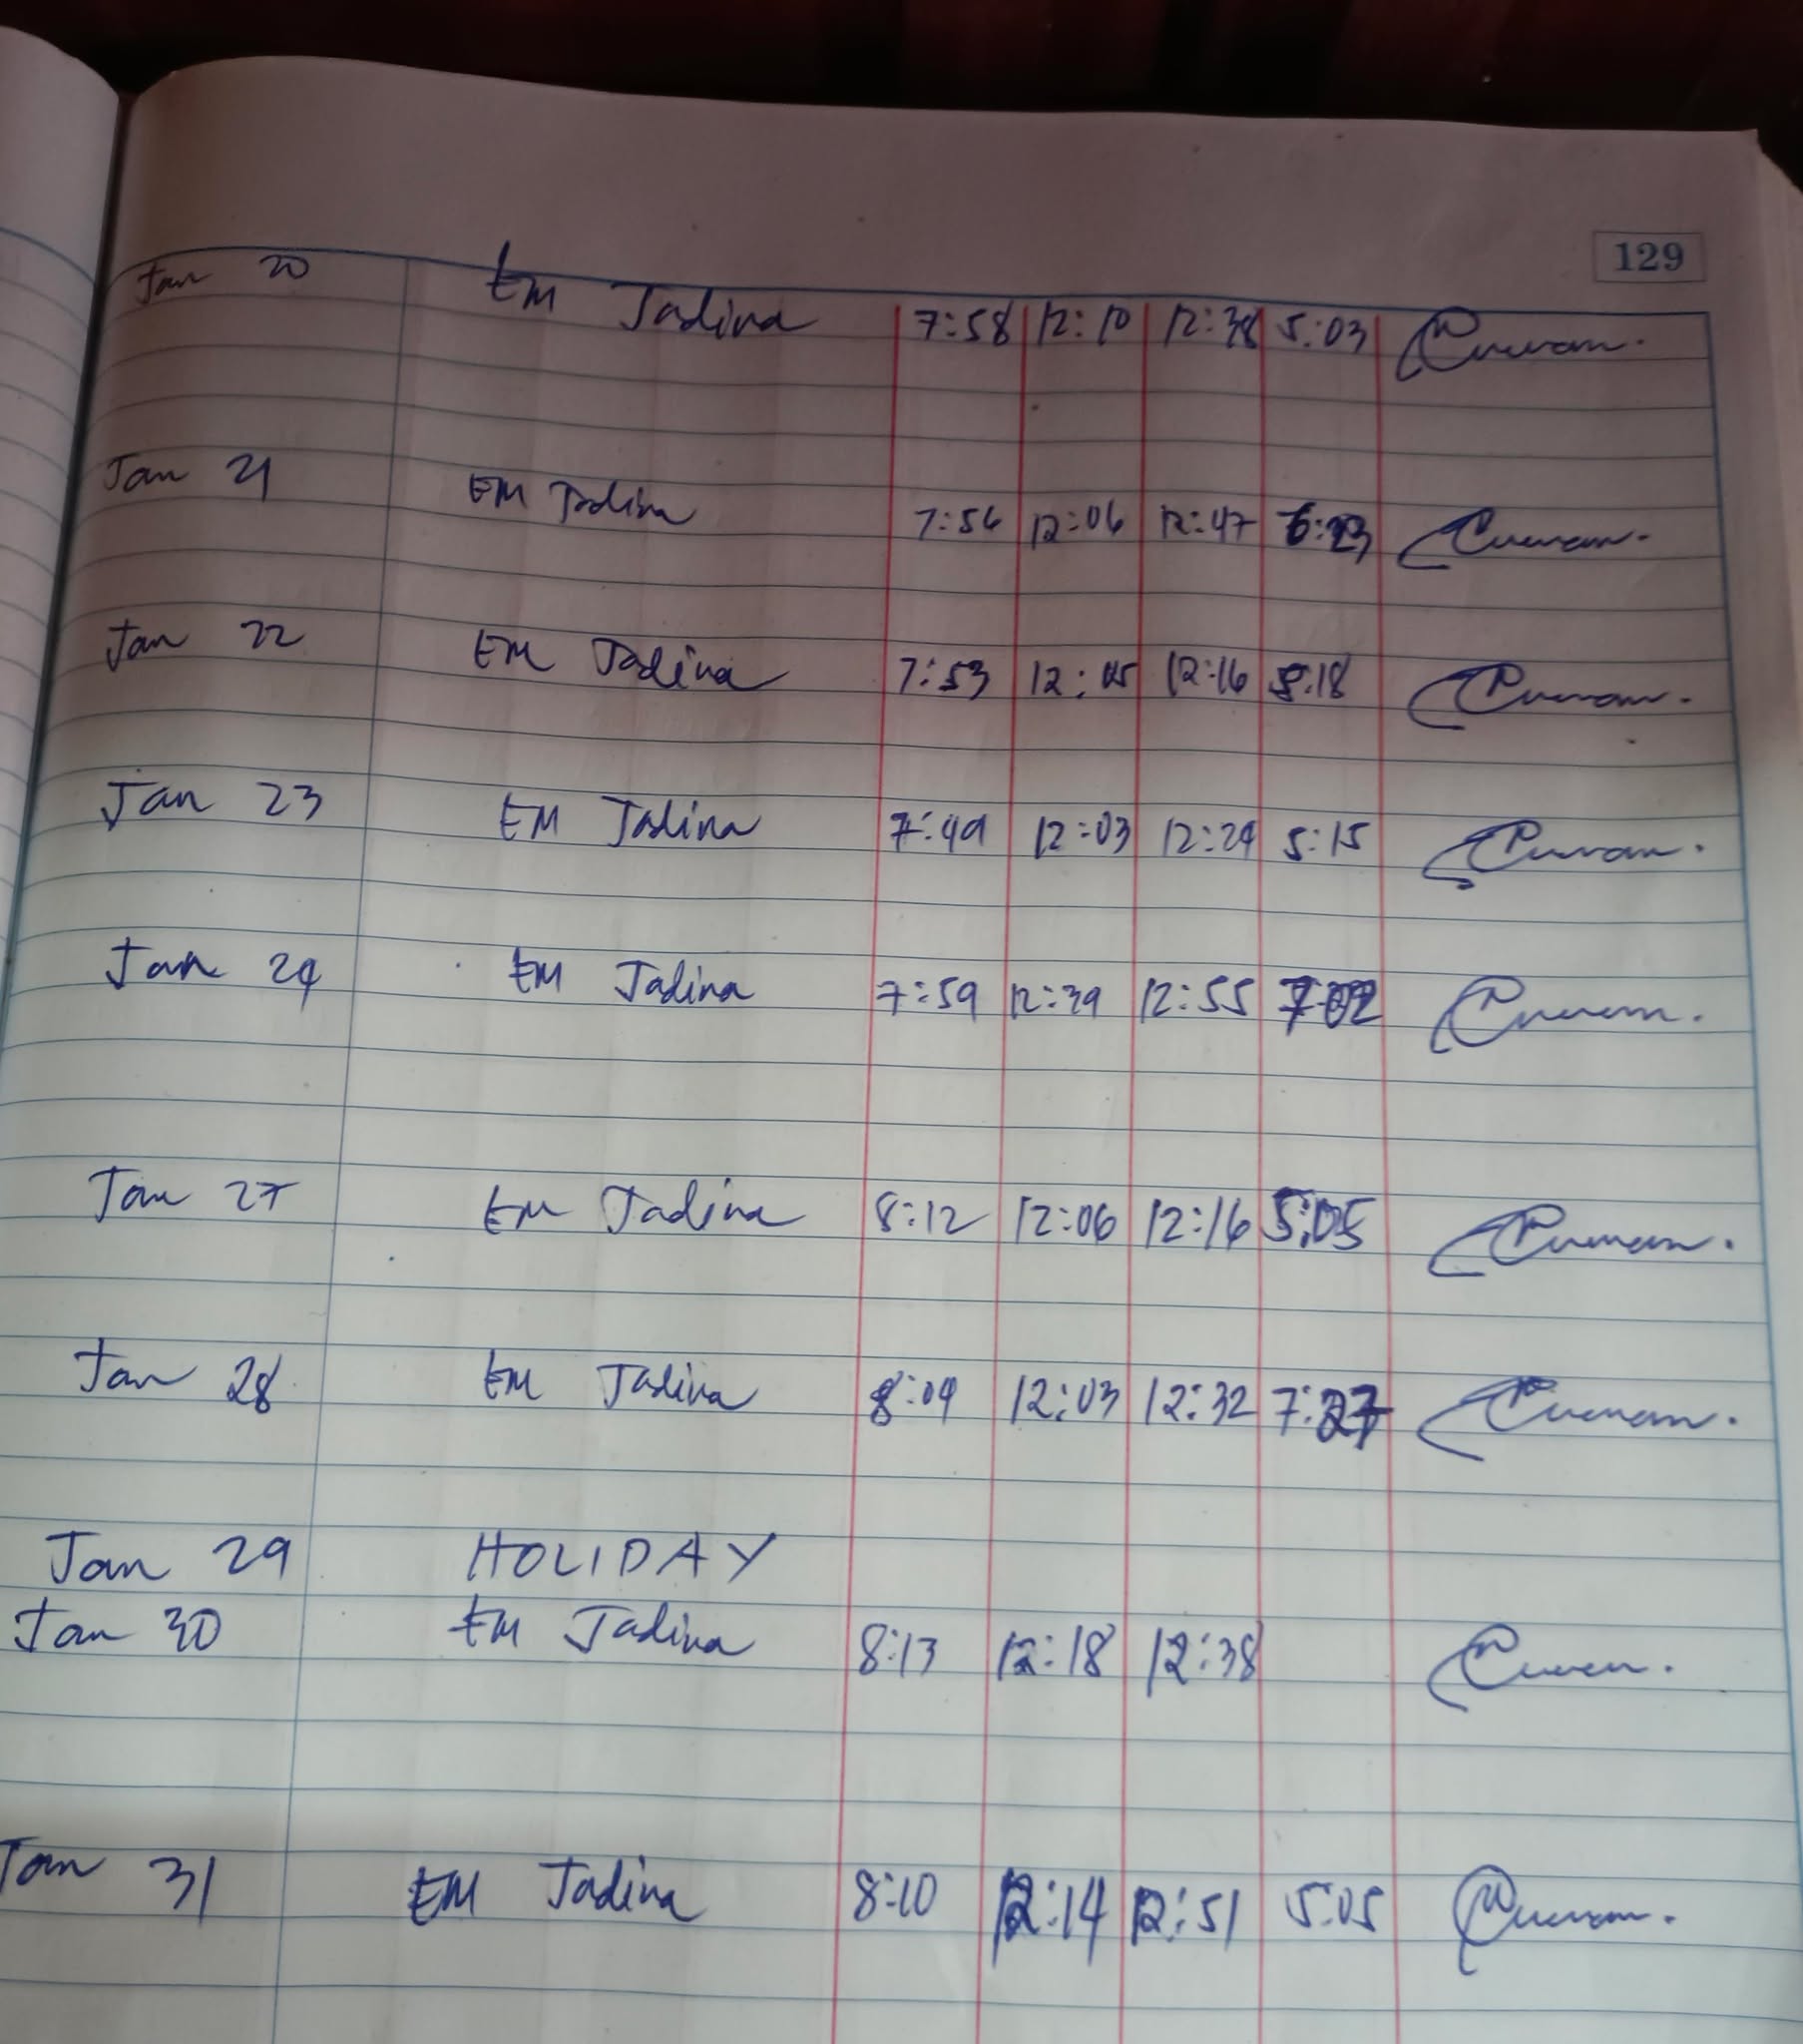 129
Jan 20 EM Jadina 7:58 12:10 12:38 5:03
Jan 21 EM Jadina 7:56 12:06 12:47
Jan 22 EM Jadina 7:53 12:05 12:16 5:18
Jan 23 EM Jadina 7:49 12:03 12:29 5:15
Jan 24 EM Jadina 7:59 12:39 12:55 7:02
Jan 27 EM Jadina 8:12 12:06 12:16 5:05
Jan 28 EM Jadina 8:09 12:03 12:32 7:27
Jan 29 HOLIDAY
Jan 30 EM Jadina 8:13 12:18 12:38
Jan 31 EM Jadina 8:10 12:14 12:51 5:05